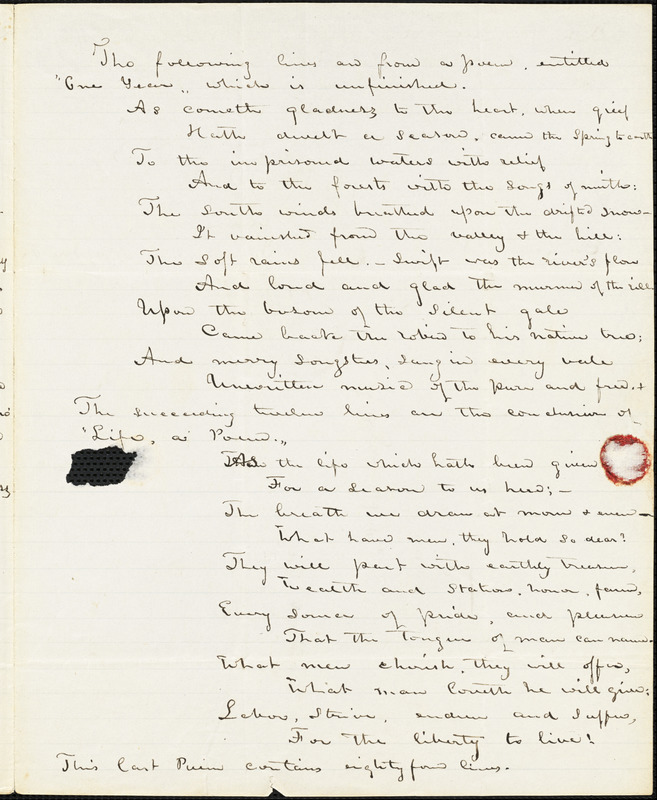 The following lines are from a poem, entitled
"One Year", which is unfinished.
As cometh gladness to the heart, when grief
Hath dwelt a season, came the Spring to earth
To the imprisoned waters with relief
And to the forests with the songs of mirth:
The South winds breathed upon the drifted snow—
It vanished from the valley & the hill:
The Soft rains fell. — Swift was the river's flow
And loud and glad the murmer of the rill
Upon the bosom of the silent gale
Came back the robin to his native tree;
And merry Songsters, sang in every vale
Unwritten music of the pure and free. +
The succeeding twelve lines are the conclusion of
"Life, a Poem."
As the life which hath been given
For a season to us here; —
The breath we draw at morn & even—
What have men, they hold so dear?
They will part with earthly treasure,
Wealth and Station, honor, fame,
Every source of pride, and pleasure
That the tongue of man can name.
What men cherish, they will offer,
What man loveth he will give;
Labor, Strive, endure and Suffer,
For the liberty to live!
This last Poem contains eighty four lines.